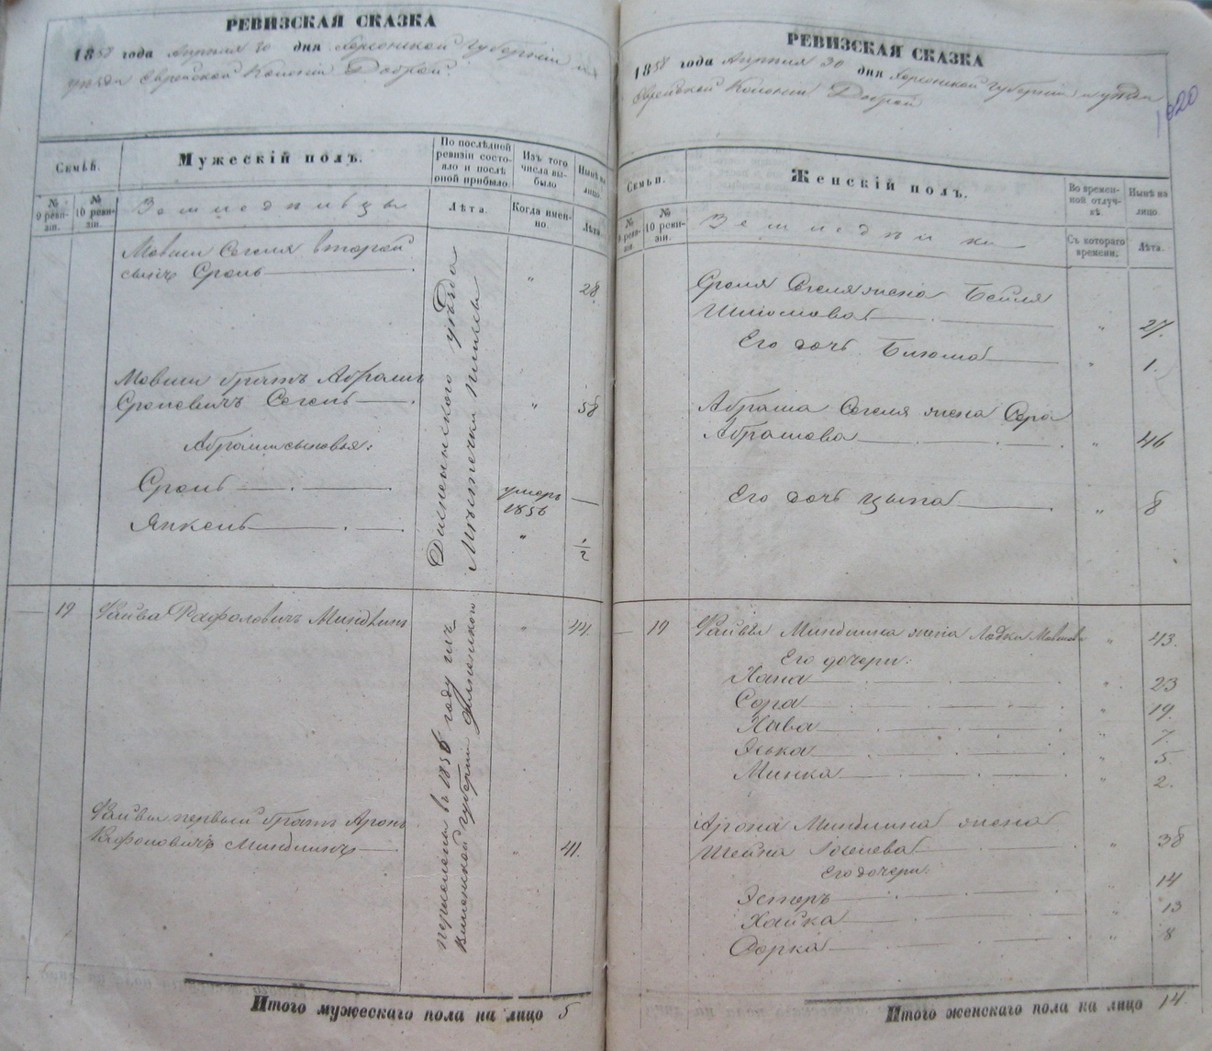 РЕВИЗСКАЯ СКАЗКА
1858 года Апреля 30 дня Херсонской Губернии и
уезда Еврейской Колонии Доброй.
Семьи.
Мужескій полъ.
По послѣдной ревизіи состояло и послѣ оной прибыло.
Изъ того числа выбыло.
Нынѣ на лицо.
№ 9 ревизіи.
№ 10 ревизіи.
Земледельцы
Лѣта.
Когда именно.
Лѣта.
Мовши Сегеля второй
сынъ Сроль " 28.
Мовши братъ Абрамъ
Сролевичъ Сегель " 58
Абрама сыновья:
Сроль умеръ 1856 —
Янкель " 1/2
Дисненскаго уѣзда
19 Файва Рафоловичъ Миндлинъ " 44.
Файвы первый братъ Аронъ
Рафоловичъ Миндлинъ " 41.
переселены въ 1856 году изъ
Виленской губерніи Дисненскаго
Итого мужескаго пола на лицо 5
РЕВИЗСКАЯ СКАЗКА
1858 года Апреля 30 дня Херсонской Губернии и уезда
Еврейской Колонии Доброй
1020
Семьи.
Женскій полъ.
Во временной отлучкѣ.
Нынѣ на лицо.
№ 9 ревизіи
№ 10 ревизіи.
Земледелки
Съ котораго времени.
Лѣта.
Сроля Сегеля жена Бейля
Шліомова " 27.
Его дочь Блюма " 1.
Абрама Сегеля жена Сора
Абрамова " 46
Его дочь Цыпа " 8
19 Файвы Миндлина жена Ладка Мовшова " 43.
Его дочери:
Хана " 23
Сора " 19.
Хава " 7.
Эська " 5.
Минка " 2.
Арона Миндлина жена
Шейна " 38
Его дочери:
Эстеръ " 14
Хайка " 13
Дорка " 8
Итого женскаго пола на лицо 14